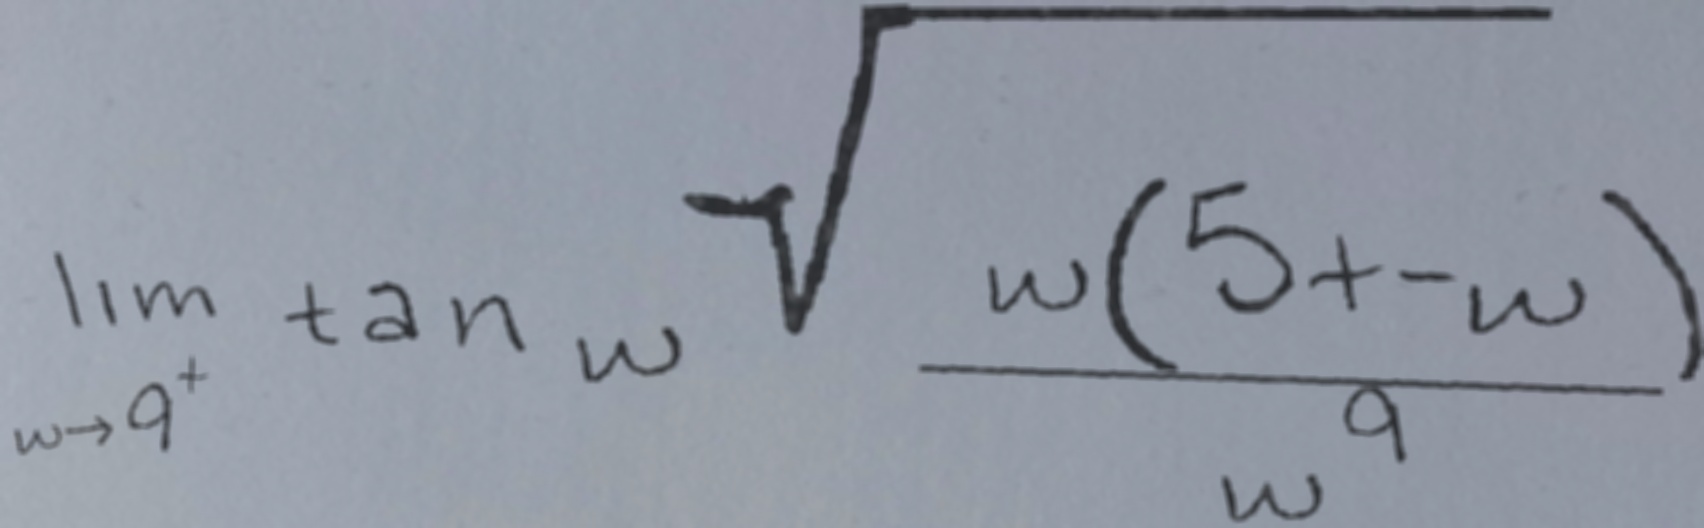 \lim_{w \to 9^+} \tan w \sqrt{\frac{w(5+-w)}{w^9}}